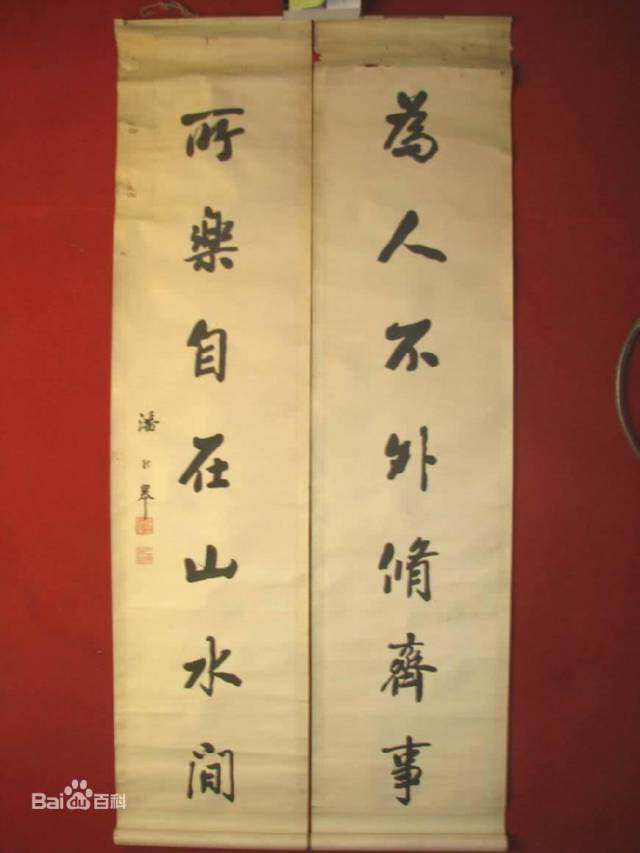 為人不外脩齊事
所樂自在山水間
潘齡皋
Bai du 百科